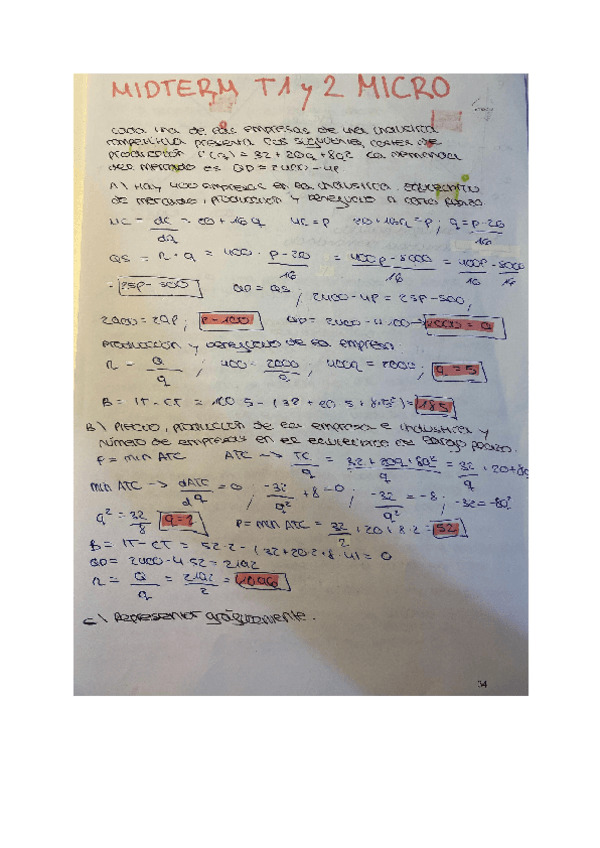 MIDTERM T1 y 2 MICRO
cada una de las empresas de una industria
competitiva presenta los siguientes costes de
producción C(q) = 32 + 20q + 8q2 La demanda
del mercado es QD = 2400 - 4P
A) Hay 400 empresas en la industria. Equilibrio
de mercado, producción y beneficio a corto plazo
MC = dC/dq = 20 + 16q MC = P 20 + 16q = P; q = P - 20/16
QS = n · q = 400 · P - 20/16 = 400P - 8000/16 = 400P/16 - 8000/16
= 25P - 500 QD = QS ; 2400 - 4P = 25P - 500;
2900 = 29P; P = 100 QD = 2400 - 4·100 → 2000 = Q
Producción y beneficio de la empresa
n = Q/q ; 400 = 2000/q ; 400q = 2000; q = 5
B = IT - CT = 100·5 - (32 + 20·5 + 8·5²) = 185
B) Precio, producción de la empresa e industria y
número de empresas en el equilibrio de largo plazo.
P = min ATC ATC → TC/q = 32 + 20q + 8q²/q = 32/q + 20 + 8q
min ATC → dATC/dq = 0 ; -32/q² + 8 = 0; -32/q² = -8; -32 = -8q²
q² = 32/8 q = 2 P = min ATC = 32/2 + 20 + 8·2 = 52
B = IT - CT = 52·2 - (32 + 20·2 + 8·4) = 0
QD = 2400 - 4·52 = 2192
n = Q/q = 2192/2 = 1096
C) Representar gráficamente.
34